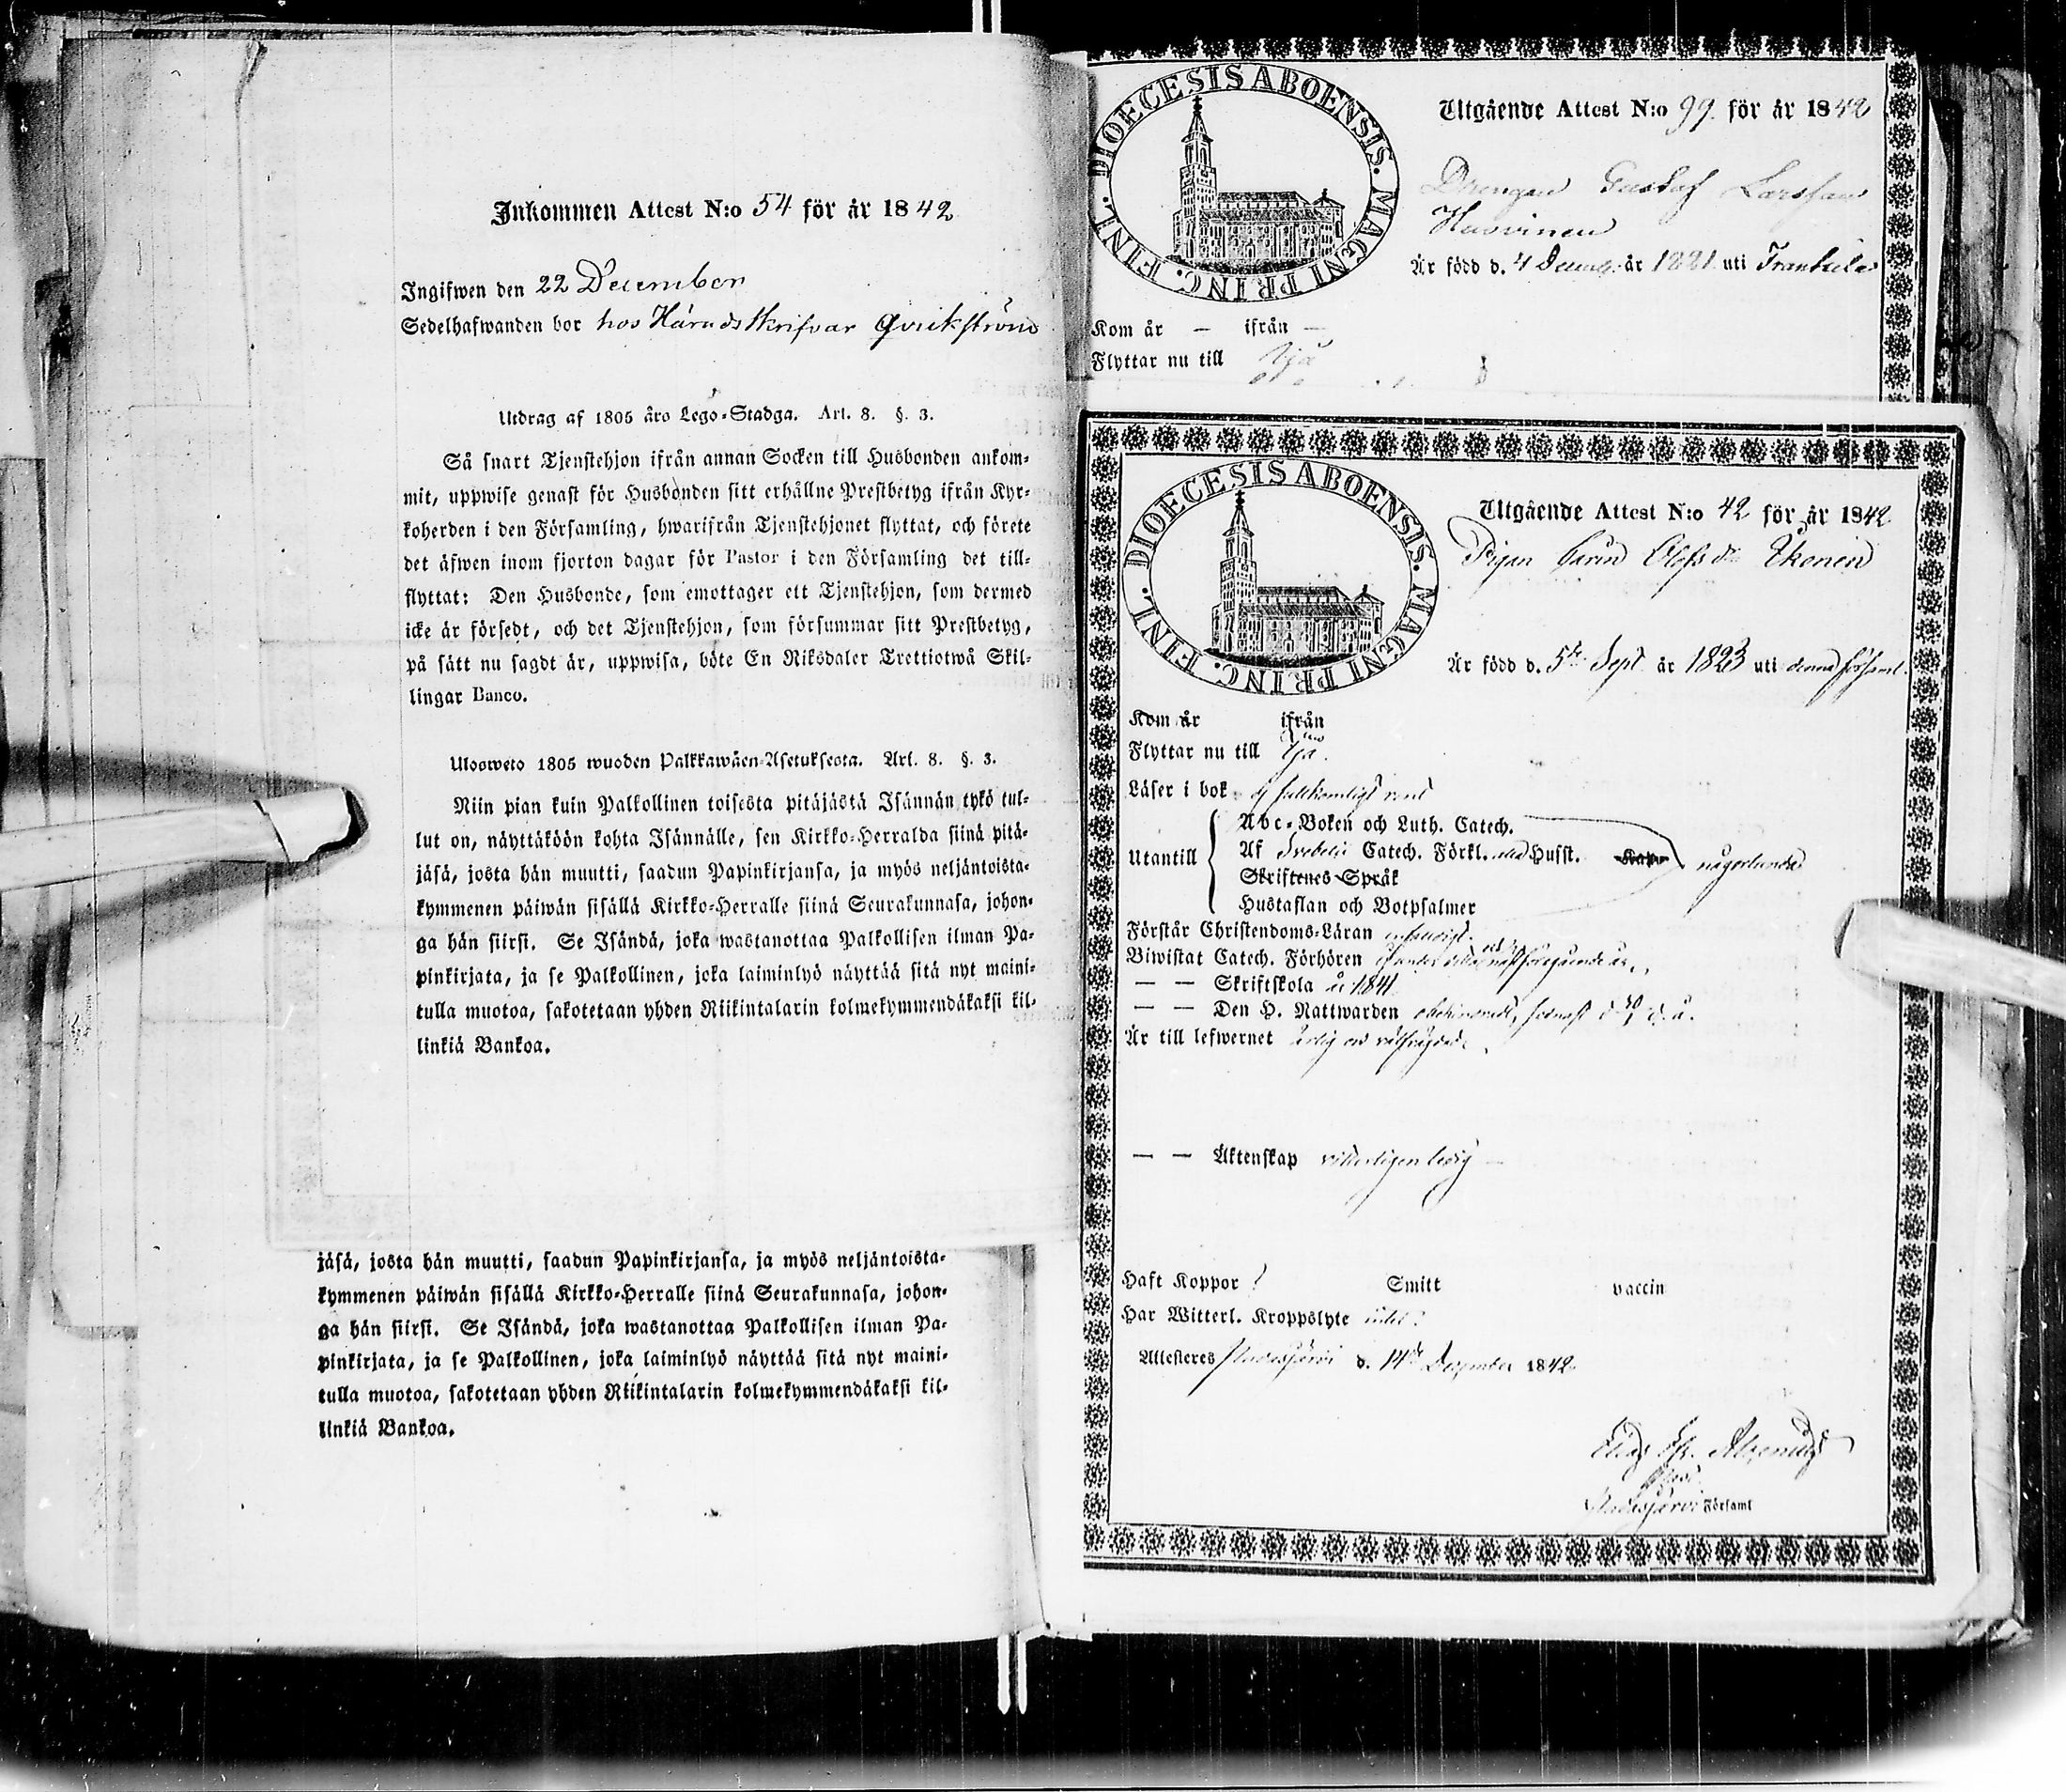 Inkommen Attest N:o 54 för år 1842
Ingifwen den 22 December
Sedelhafwanden bor hos Häradsskrifvar Qvickström
Utdrag af 1805 års Lego-Stadga. Art. 8. §. 3.
Så snart Tjenstehjon ifrån annan Socken till Husbonden ankom-
mit, uppwise genast för Husbonden sitt erhållne Prestbetyg ifrån Kyr-
koherden i den Församling, hwarifrån Tjenstehjonet flyttat, och förete
det äfwen inom fjorton dagar för Pastor i den Församling det till-
flyttat: Den Husbonde, som emottager ett Tjenstehjon, som dermed
icke är försedt, och det Tjenstehjon, som försummar sitt Prestbetyg,
på sätt nu sagdt är, uppwisa, böte En Riksdaler Trettiotwå Skil-
lingar Banco.
Ulosweto 1805 wuoden Palkkawäen-Asetuksesta. Art. 8. §. 3.
Niin pian kuin Palkollinen toisesta pitäjästä Isännän tykö tul-
lut on, näyttäköön kohta Isännälle, sen Kirkko-Herralda siinä pitä-
jäsä, josta hän muutti, saadun Papinkirjansa, ja myös neljäntoista-
kymmenen päiwän sisällä Kirkko-Herralle siinä Seurakunnasa, johon-
ga hän siirsi. Se Isändä, joka wastanottaa Palkollisen ilman Pa-
pinkirjata, ja se Palkollinen, joka laiminlyö näyttää sitä nyt maini-
tulla muotoa, sakotetaan yhden Riikintalarin kolmekymmendäkaksi kil-
linkiä Bankoa.
jäsä, josta hän muutti, saadun Papinkirjansa, ja myös neljäntoista-
kymmenen päiwän sisällä Kirkko-Herralle siinä Seurakunnasa, johon-
ga hän siirsi. Se Isändä, joka wastanottaa Palkollisen ilman Pa-
pinkirjata, ja se Palkollinen, joka laiminlyö näyttää sitä nyt maini-
tulla muotoa, sakotetaan yhden Riikintalarin kolmekymmendäkaksi kil-
linkiä Bankoa.
DIOECESIS ABOENSIS. MAGNI PRINC. FINL.
Utgående Attest N:o 99 för år 1842
Drengen Gustaf Larsson
Är född d. 4 Decemb. år 1821 uti Frantsila
Kom år — ifrån —
Flyttar nu till
DIOECESIS ABOENSIS. MAGNI PRINC. FINL.
Utgående Attest N:o 42 för år 1842
Pigan Carin Olofsdr Ekonen
Är född d. 5te Sept. år 1823 uti denna församl.
Kom år ifrån
Flyttar nu till
Läser i bok ej fullkomligt rent
Abc-Boken och Luth. Catech.
Utantill Af Svebelii Catech. Förkl. med Husst. någorlunda
Skriftenes Språk
Hustaflan och Botpsalmer
Förstår Christendoms-Läran
Biwistat Catech. Förhören
— — Skriftskola år 1841
— — Den H. Nattwarden
Är till lefwernet ärlig och välfrägdad
— — Äktenskap vitterligen ledig
Haft Koppor Smitt vaccin
Har Witterl. Kroppslyte intet
Attesteras d. 14de December 1842
Församl